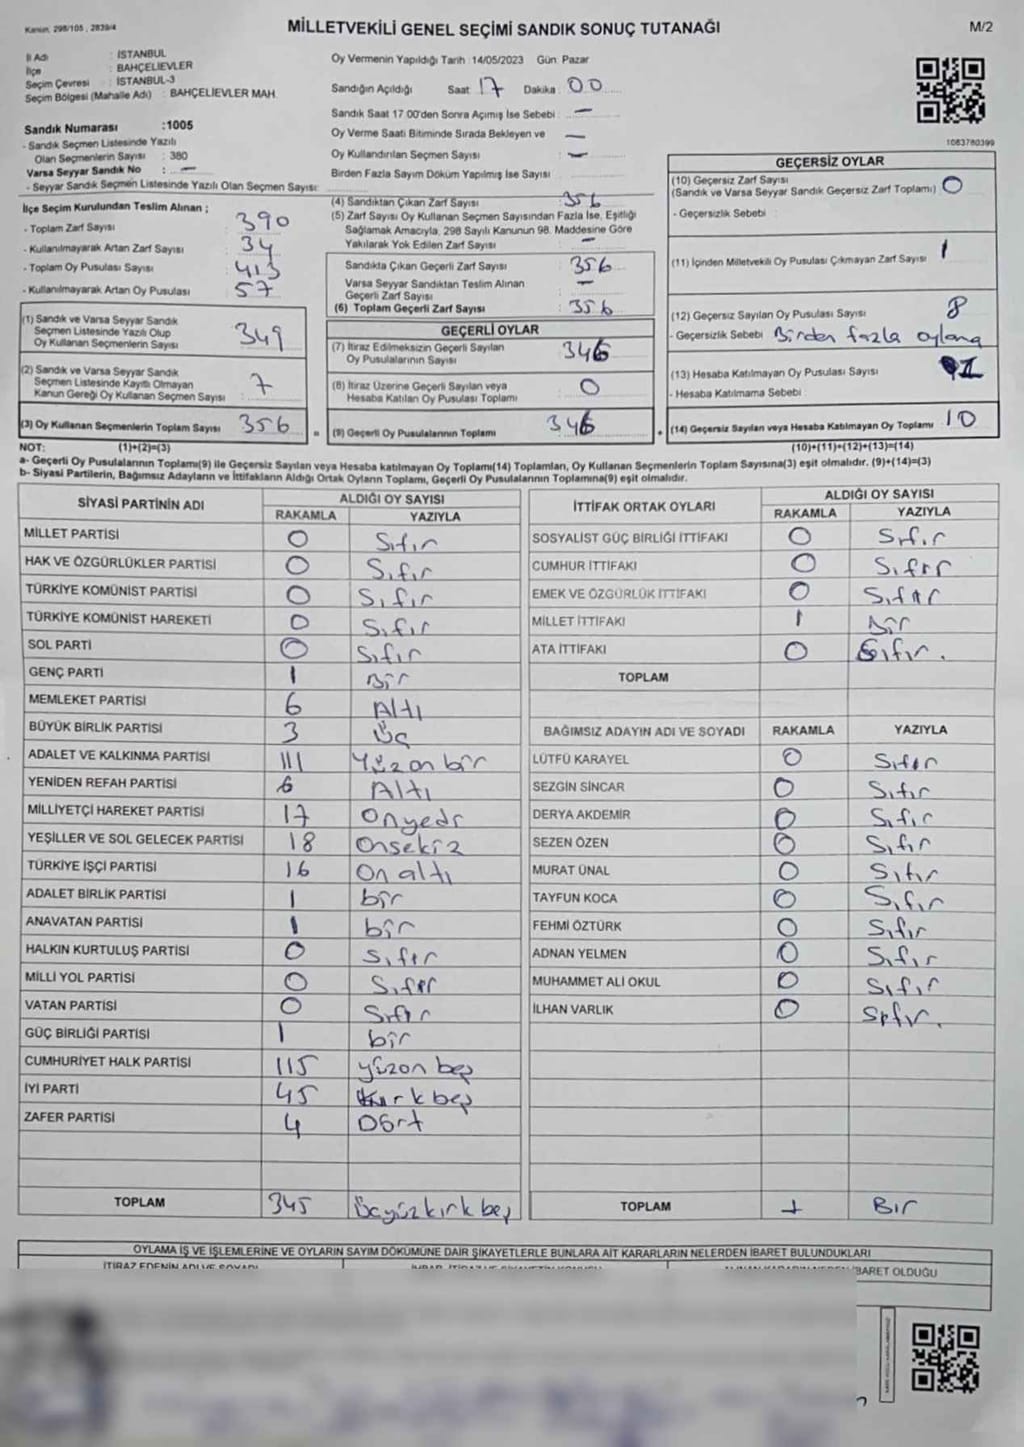 Kanun: 298/105 , 2839/4
MİLLETVEKİLİ GENEL SEÇİMİ SANDIK SONUÇ TUTANAĞI
M/2
İl Adı : İSTANBUL
İlçe : BAHÇELİEVLER
Seçim Çevresi : İSTANBUL-3
Seçim Bölgesi (Mahalle Adı) : BAHÇELİEVLER MAH.
Sandık Numarası :1005
- Sandık Seçmen Listesinde Yazılı
Olan Seçmenlerin Sayısı : 380
Varsa Seyyar Sandık No : —
- Seyyar Sandık Seçmen Listesinde Yazılı Olan Seçmen Sayısı:
Oy Vermenin Yapıldığı Tarih :14/05/2023 Gün: Pazar
Sandığın Açıldığı Saat: 17 Dakika: 00
Sandık Saat 17.00'den Sonra Açılmış İse Sebebi : —
Oy Verme Saati Bitiminde Sırada Bekleyen ve —
Oy Kullandırılan Seçmen Sayısı : —
Birden Fazla Sayım Döküm Yapılmış İse Sayısı :
1083780399
İlçe Seçim Kurulundan Teslim Alınan ;
- Toplam Zarf Sayısı : 390
- Kullanılmayarak Artan Zarf Sayısı : 34
- Toplam Oy Pusulası Sayısı : 413
- Kullanılmayarak Artan Oy Pusulası : 57
(1) Sandık ve Varsa Seyyar Sandık
Seçmen Listesinde Yazılı Olup
Oy Kullanan Seçmenlerin Sayısı : 349
(2) Sandık ve Varsa Seyyar Sandık
Seçmen Listesinde Kayıtlı Olmayan
Kanun Gereği Oy Kullanan Seçmen Sayısı : 7
(3) Oy Kullanan Seçmenlerin Toplam Sayısı : 356
(4) Sandıktan Çıkan Zarf Sayısı : 356
(5) Zarf Sayısı Oy Kullanan Seçmen Sayısından Fazla İse, Eşitliği
Sağlamak Amacıyla, 298 Sayılı Kanunun 98. Maddesine Göre
Yakılarak Yok Edilen Zarf Sayısı : —
Sandıkta Çıkan Geçerli Zarf Sayısı : 356
Varsa Seyyar Sandıktan Teslim Alınan
Geçerli Zarf Sayısı : —
(6) Toplam Geçerli Zarf Sayısı : 356
GEÇERLİ OYLAR
(7) İtiraz Edilmeksizin Geçerli Sayılan
Oy Pusulalarının Sayısı : 346
(8) İtiraz Üzerine Geçerli Sayılan veya
Hesaba Katılan Oy Pusulası Toplamı : 0
(9) Geçerli Oy Pusulalarının Toplamı : 346
GEÇERSİZ OYLAR
(10) Geçersiz Zarf Sayısı
(Sandık ve Varsa Seyyar Sandık Geçersiz Zarf Toplamı) : 0
- Geçersizlik Sebebi :
(11) İçinden Milletvekili Oy Pusulası Çıkmayan Zarf Sayısı : 1
(12) Geçersiz Sayılan Oy Pusulası Sayısı : 8
- Geçersizlik Sebebi : Birden fazla oylama
(13) Hesaba Katılmayan Oy Pusulası Sayısı : 1
- Hesaba Katılmama Sebebi :
(14) Geçersiz Sayılan veya Hesaba Katılmayan Oy Toplamı : 10
NOT: (1)+(2)=(3) (10)+(11)+(12)+(13)=(14)
a- Geçerli Oy Pusulalarının Toplamı(9) ile Geçersiz Sayılan veya Hesaba katılmayan Oy Toplamı(14) Toplamları, Oy Kullanan Seçmenlerin Toplam Sayısına(3) eşit olmalıdır. (9)+(14)=(3)
b- Siyasi Partilerin, Bağımsız Adayların ve İttifakların Aldığı Ortak Oyların Toplamı, Geçerli Oy Pusulalarının Toplamına(9) eşit olmalıdır.
SİYASİ PARTİNİN ADI ALDIĞI OY SAYISI
RAKAMLA YAZIYLA
MİLLET PARTİSİ 0 Sıfır
HAK VE ÖZGÜRLÜKLER PARTİSİ 0 Sıfır
TÜRKİYE KOMÜNİST PARTİSİ 0 Sıfır
TÜRKİYE KOMÜNİST HAREKETİ 0 Sıfır
SOL PARTİ 0 Sıfır
GENÇ PARTİ 1 Bir
MEMLEKET PARTİSİ 6 Altı
BÜYÜK BİRLİK PARTİSİ 3 Üç
ADALET VE KALKINMA PARTİSİ 111 Yüzonbir
YENİDEN REFAH PARTİSİ 6 Altı
MİLLİYETÇİ HAREKET PARTİSİ 17 Onyedi
YEŞİLLER VE SOL GELECEK PARTİSİ 18 Onsekiz
TÜRKİYE İŞÇİ PARTİSİ 16 Onaltı
ADALET BİRLİK PARTİSİ 1 bir
ANAVATAN PARTİSİ 1 bir
HALKIN KURTULUŞ PARTİSİ 0 Sıfır
MİLLİ YOL PARTİSİ 0 Sıfır
VATAN PARTİSİ 0 Sıfır
GÜÇ BİRLİĞİ PARTİSİ 1 bir
CUMHURİYET HALK PARTİSİ 115 yüzon beş
İYİ PARTİ 45 kırk beş
ZAFER PARTİSİ 4 Dört
TOPLAM 345 Üçyüzkırk beş
İTTİFAK ORTAK OYLARI ALDIĞI OY SAYISI
RAKAMLA YAZIYLA
SOSYALİST GÜÇ BİRLİĞİ İTTİFAKI 0 Sıfır
CUMHUR İTTİFAKI 0 Sıfır
EMEK VE ÖZGÜRLÜK İTTİFAKI 0 Sıfır
MİLLET İTTİFAKI 1 Bir
ATA İTTİFAKI 0 Sıfır.
TOPLAM
BAĞIMSIZ ADAYIN ADI VE SOYADI RAKAMLA YAZIYLA
LÜTFÜ KARAYEL 0 Sıfır
SEZGİN SİNCAR 0 Sıfır
DERYA AKDEMİR 0 Sıfır
SEZEN ÖZEN 0 Sıfır
MURAT ÜNAL 0 Sıfır
TAYFUN KOCA 0 Sıfır
FEHMİ ÖZTÜRK 0 Sıfır
ADNAN YELMEN 0 Sıfır
MUHAMMET ALİ OKUL 0 Sıfır
İLHAN VARLIK 0 Sıfır.
TOPLAM 1 Bir
OYLAMA İŞ VE İŞLEMLERİNE VE OYLARIN SAYIM DÖKÜMÜNE DAİR ŞİKAYETLERLE BUNLARA AİT KARARLARIN NELERDEN İBARET BULUNDUKLARI
İTİRAZ EDENİN ADI VE SOYADI
İBARET OLDUĞU